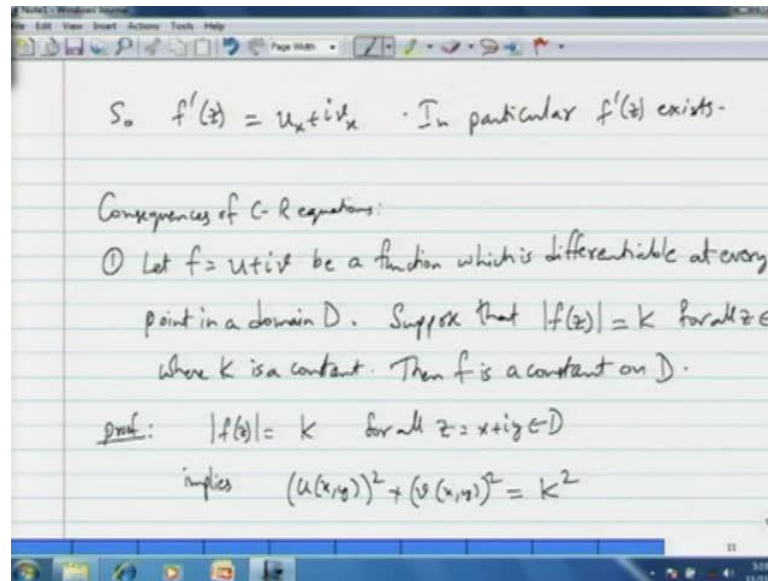 Note1 - Windows Journal
File Edit View Insert Actions Tools Help
Page Width
So f'(z) = u_x + iv_x . In particular f'(z) exists.
Consequences of C-R equations:
① Let f = u+iv be a function which is differentiable at every
point in a domain D. Suppose that |f(z)| = K for all z ∈
where K is a constant. Then f is a constant on D.
proof: |f(z)| = K for all z = x+iy ∈ D
implies (u(x,y))² + (v(x,y))² = K²
11